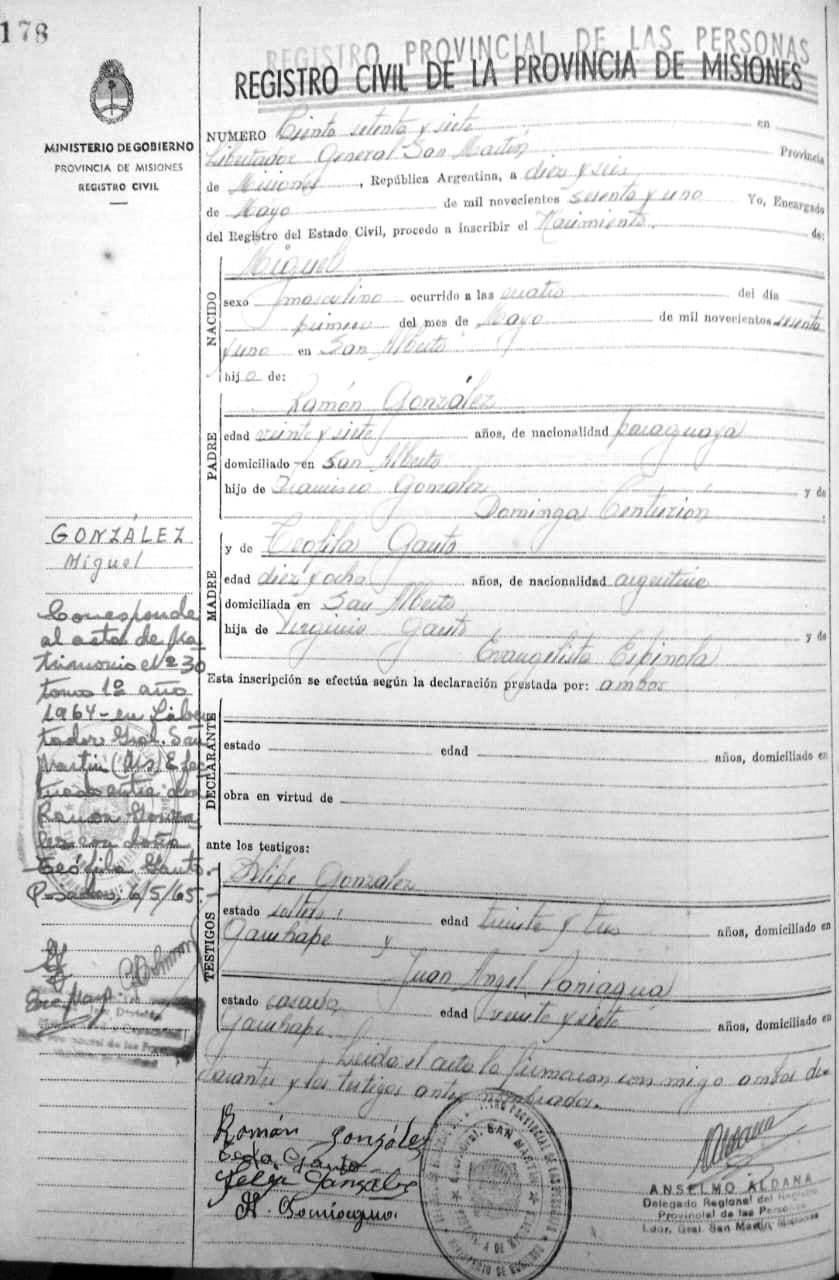 178
REGISTRO PROVINCIAL DE LAS PERSONAS
REGISTRO CIVIL DE LA PROVINCIA DE MISIONES
MINISTERIO DE GOBIERNO
PROVINCIA DE MISIONES
REGISTRO CIVIL
NUMERO Ciento setenta y siete en
Libertador General San Martín Provincia
de Misiones, República Argentina, a diez y seis
de Mayo de mil novecientos sesenta y uno Yo, Encargado
del Registro del Estado Civil, procedo a inscribir el Nacimiento de:
NACIDO
Miguel
sexo masculino ocurrido a las cuatro del día
primero del mes de Mayo de mil novecientos sesenta
y uno en San Alberto
hijo de:
PADRE
Ramón González
edad veinte y siete años, de nacionalidad paraguaya
domiciliado en San Alberto
hijo de Francisco Gonzalez y de
Dominga Centurión :
MADRE
y de Teofila Gauto
edad diez y ocho años, de nacionalidad argentina
domiciliada en San Alberto
hija de Virginio Gauto y de
Evangelista Espinola
Esta inscripción se efectúa según la declaración prestada por: ambos
DECLARANTE
estado edad años, domiciliado en
obra en virtud de
ante los testigos:
TESTIGOS
Felipe Gonzalez
estado soltero edad treinta y tres años, domiciliado en
Garuhape y
Juan Angel Paniagua
estado casado edad treinta y siete años, domiciliado en
Garuhape.
Leída el acta la firmaron con migo ambos de
clarantes y los testigos antes nombrados.
GONZÁLEZ
Miguel
Corresponde
al acta de ma
trimonio el Nº 30
tomo 1º año
1964 - en Liber
tador Gral. San
Martín (Ms) Efec
tuado entre don
Ramon Gonza
lez con doña
Teófila Gauto.-
P-sadas, 6/5/65.-
Román González
Teofa Gauto
Felipe González
SAN MARTIN
ANSELMO ALDANA
Delegado Regional del Registro
Provincial de las Personas
Ldor. Gral. San Martín, Misiones